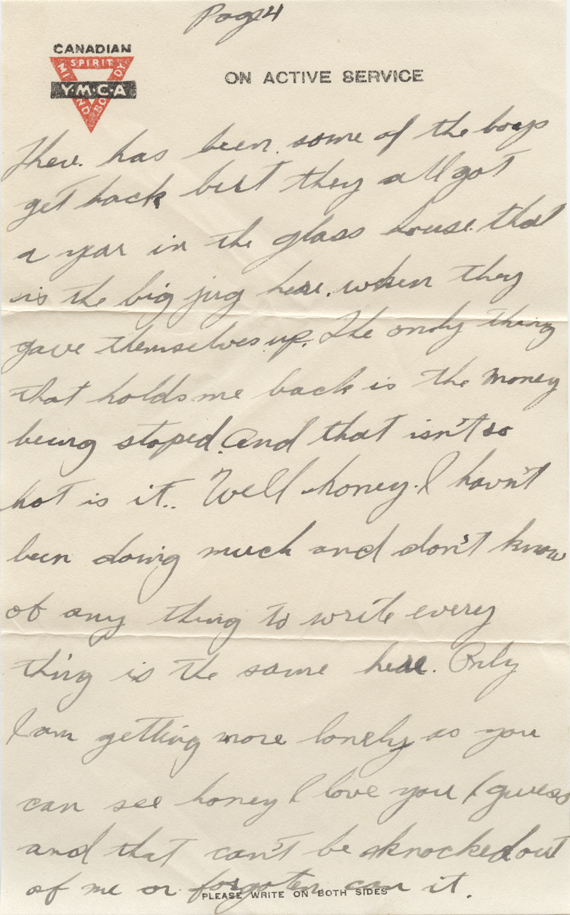 Page 4
CANADIAN
SPIRIT
MIND
BODY
Y·M·C·A
ON ACTIVE SERVICE
There. has been. some of the boys
get back but they all got
a year in the glass house. that
is the big jug here. when they
gave themselves up. The ondy thing
that holds me back is the money
being stoped. And that isn't so
hot is it.. Well honey. I havn't
been doing much and don't know
of any thing to write every
thing is the same here. Only
I am getting more lonely as you
can see honey I love you I guess
and that can't be knocked out
of me or forgoten can it.
PLEASE WRITE ON BOTH SIDES